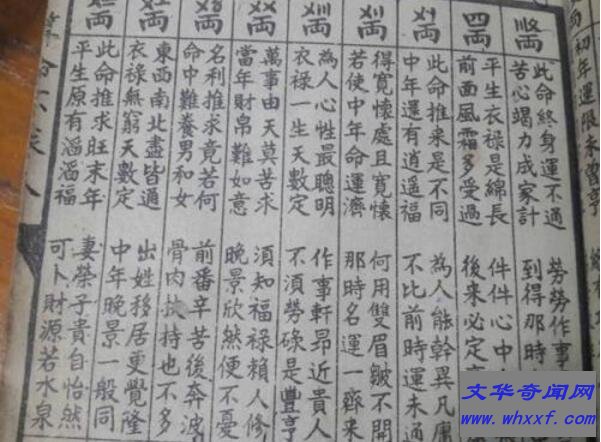 初年運限未曾亨
両
此命終身運不通
勞勞作事
苦心竭力成家計
到得那時
四両
平生衣祿是綿長
件件心中
前面風霜多受過
後来必定
〤〡両
此命推来是不同
為人能幹異凡庸
中年還有逍遥福
不比前時運未通
〤〢両
得寬懷處且寬懷
何用雙眉皺不開
若使中年命運濟
那時名運一齊来
〤〣両
為人心性最聰明
作事軒昂近貴人
衣祿一生天數定
不須勞碌是豊亨
〤〤両
萬事由天莫苦求
須知福祿賴人修
當年財帛難如意
晚景欣然便不憂
両
名利推求竟若何
前番辛苦後奔波
命中難養男和女
骨肉扶持也不多
両
東西南北盡皆通
出姓移居更覺隆
衣祿無窮天數定
中年晚景一般同
両
此命推求旺末年
妻榮子貴自怡然
平生原有滔滔福
可卜財源若水泉
文华奇闻网
www.whxxf.com